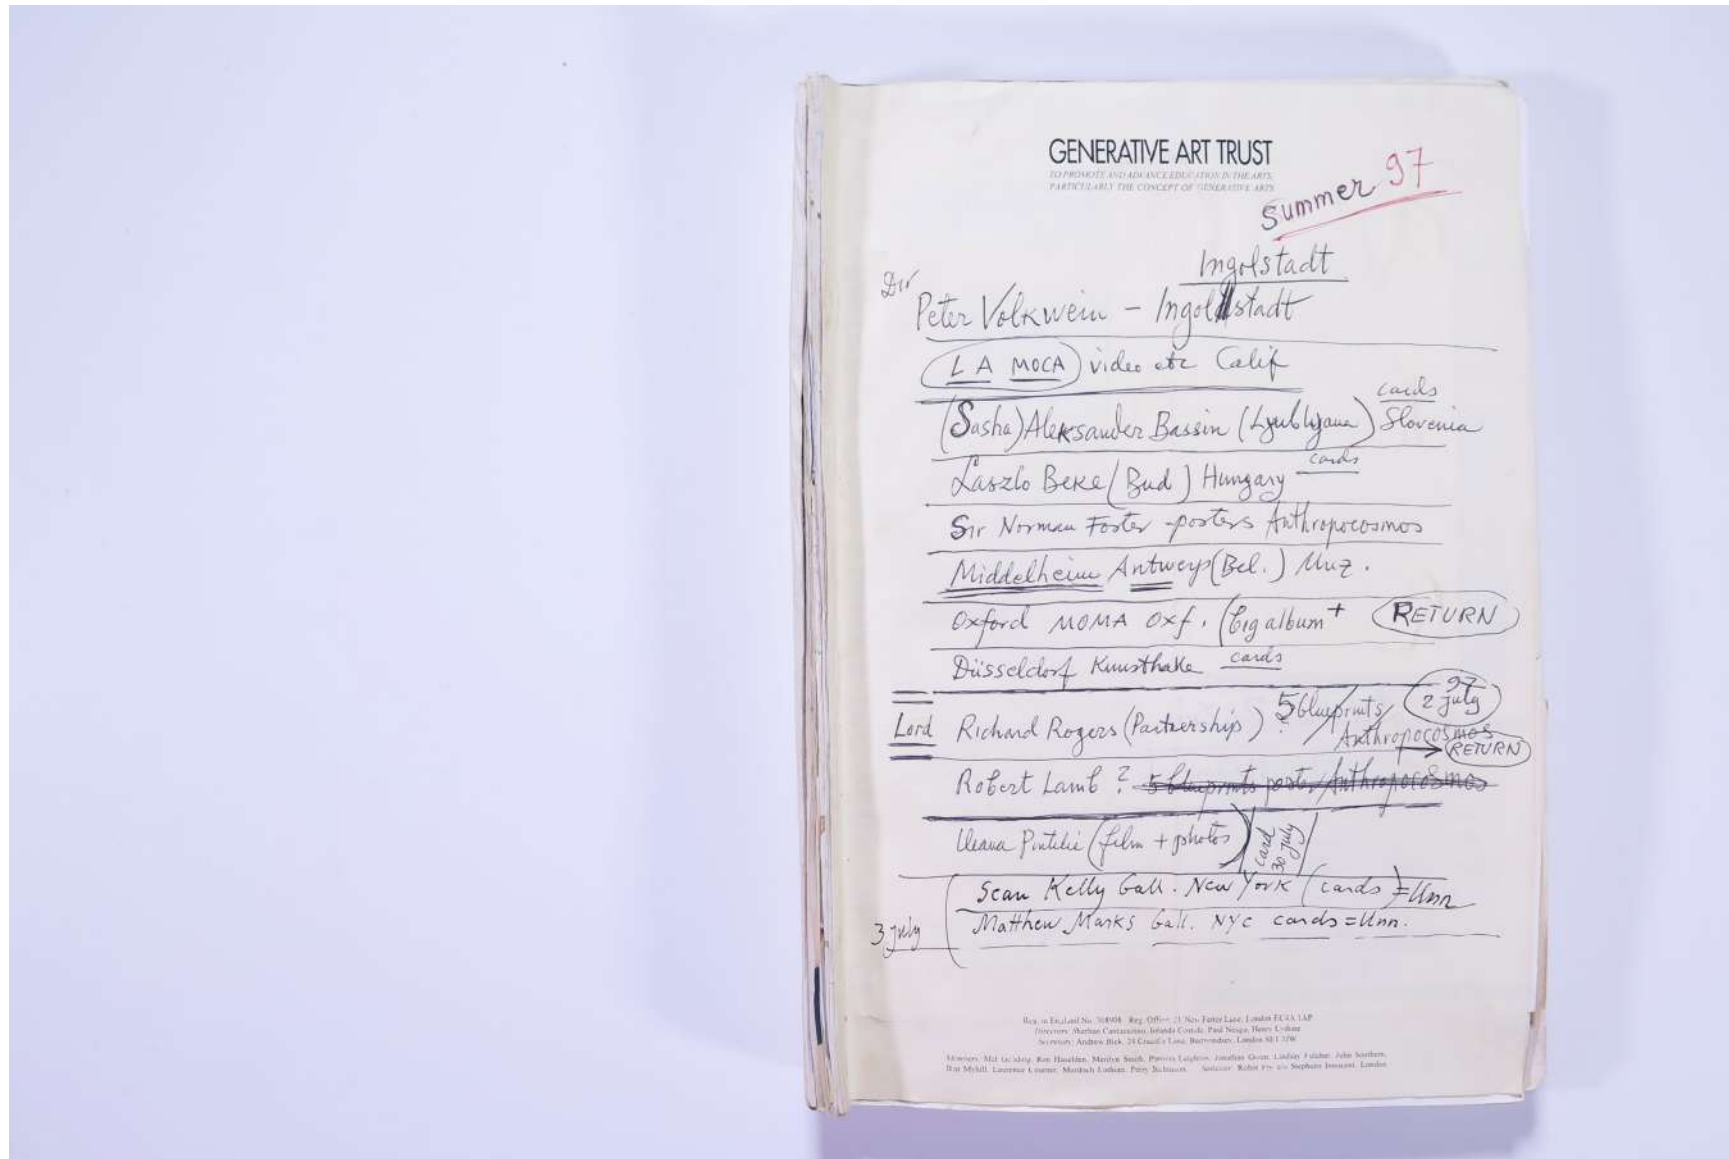 GENERATIVE ART TRUST
TO PROMOTE AND ADVANCE EDUCATION IN THE ARTS,
PARTICULARLY THE CONCEPT OF GENERATIVE ARTS
Summer 97
Ingolstadt
Dir Peter Volkwein – Ingolstadt
LA MOCA video etc Calif
cards
(Sasha) Aleksander Bassin (Ljubljana) Slovenia
Laszlo Beke (Bud) Hungary cards
Sir Norman Foster – posters Anthropocosmos
Middelheim Antwerp (Bel.) Muz.
Oxford MOMA Oxf. (big album + RETURN
Düsseldorf Kunsthalle cards
Lord Richard Rogers (Partnership) ? 5 blueprints / 97 2 july
Anthropocosmos → RETURN
Robert Lamb ? 5 blueprints poster/Anthropocosmos
Ileana Pintilie (film + photos) card 30 july
Sean Kelly Gall. New York (cards) = Unn
3 july Matthew Marks Gall. NYC cards = Unn.
Reg. in England No. Reg. Office: 21 New Fetter Lane, London EC4A 1AP
Directors: Sherban Cantacuzino, Paul Neagu,
Secretary: Andrew Bick, London SE1
Members: Mel Gooding, Ron Haselden, Marilyn Smith, Patricia Leighton, Jonathan
Perry Robinson. London